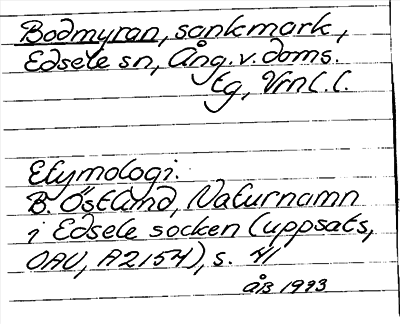 Bodmyran, sankmark,
Edsele sn, Ång. v. doms.
tg, Vrnl. l.
Etymologi.
B. Östlind, Naturnamn
i Edsele socken (uppsats,
OAU, A2154), s. 41
ÅB 1993